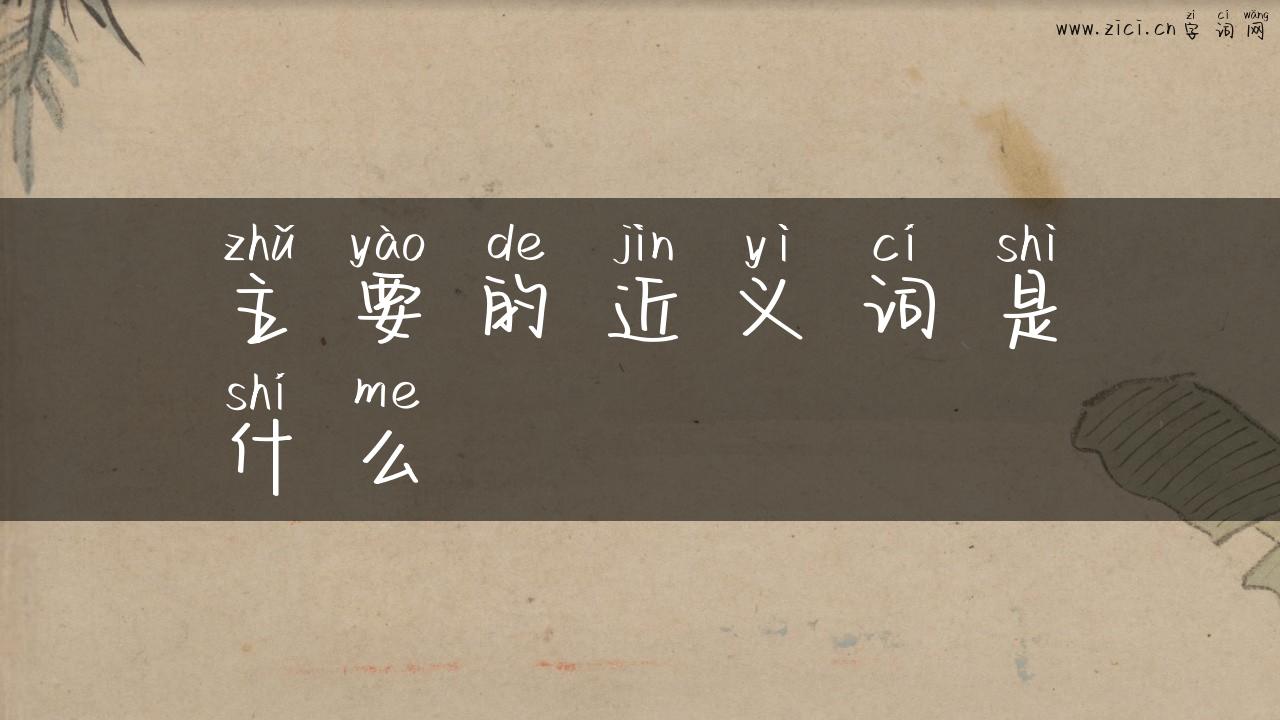 zì cí wǎng
www.zici.cn 字词网
zhǔ yào de jìn yì cí shì
主要的近义词是
shí me
什么